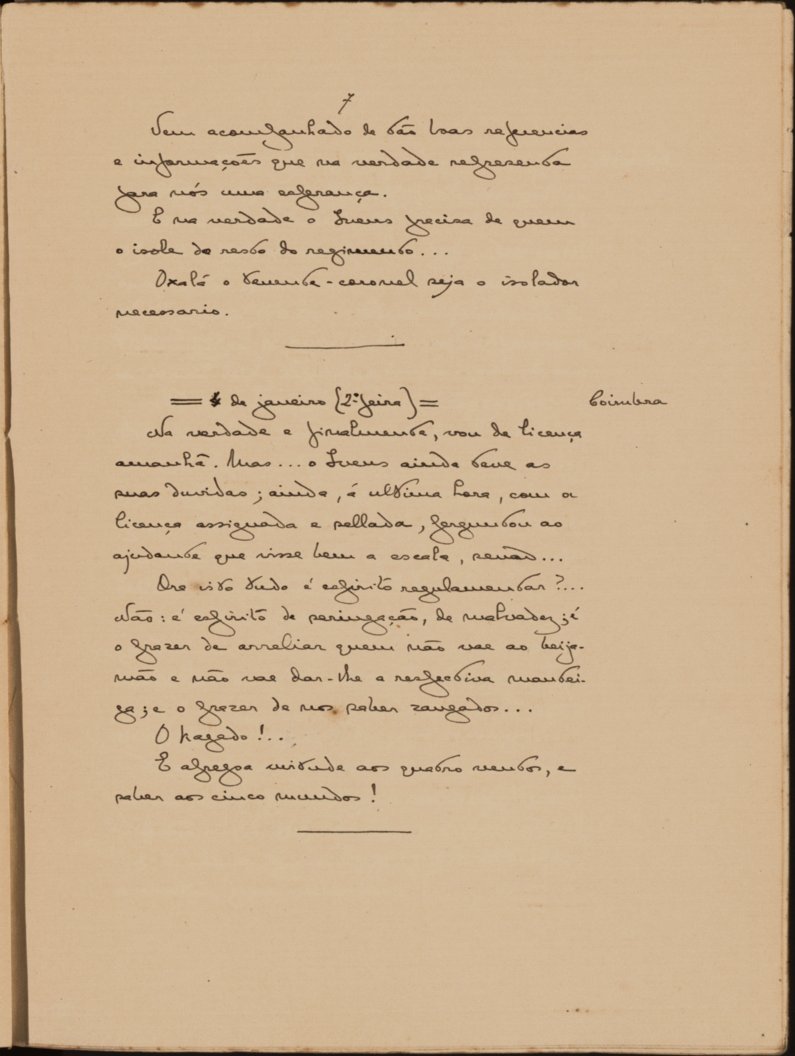 7
Vem acompanhado de tão boas referencias
e informações que na verdade representa
para nós uma esperança.
E na verdade o Ivens precisa de quem
o isole do resto do regimento...
Oxalá o tenente-coronel seja o isolador
necessario.
= 4 de janeiro (2ª feira) = Coimbra
Na verdade e finalmente, vou de licença
amanhã. Mas... o Ivens ainda teve as
suas duvidas; ainda, á ultima hora, com a
licença assignada e sellada, perguntou ao
ajudante que visse bem a escala, senão...
Ora isto tudo é espirito regulamentar?...
Não: é espirito de seringação, de malvadez; é
o prazer de arreliar quem não vae ao beija-
mão e não vae dar-lhe a respectiva mantei-
ga; e o prazer de nos saber zangados...
O kagado!..
E apregoa virtude aos quatro ventos, e
saber aos cinco mundos!